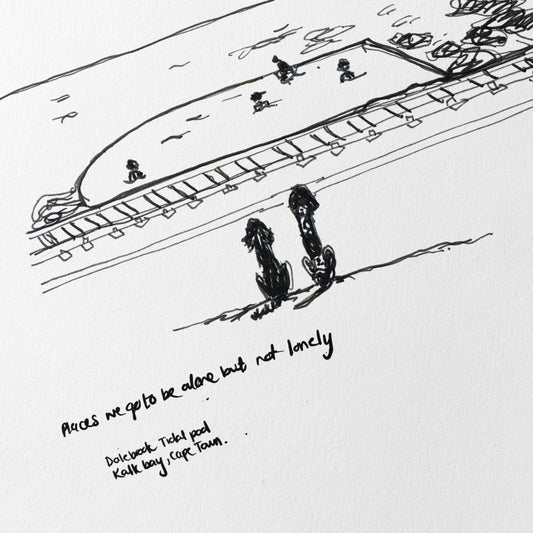 Places we go to be alone but not lonely
Dalebrook Tidal pool
Kalk bay, Cape Town.